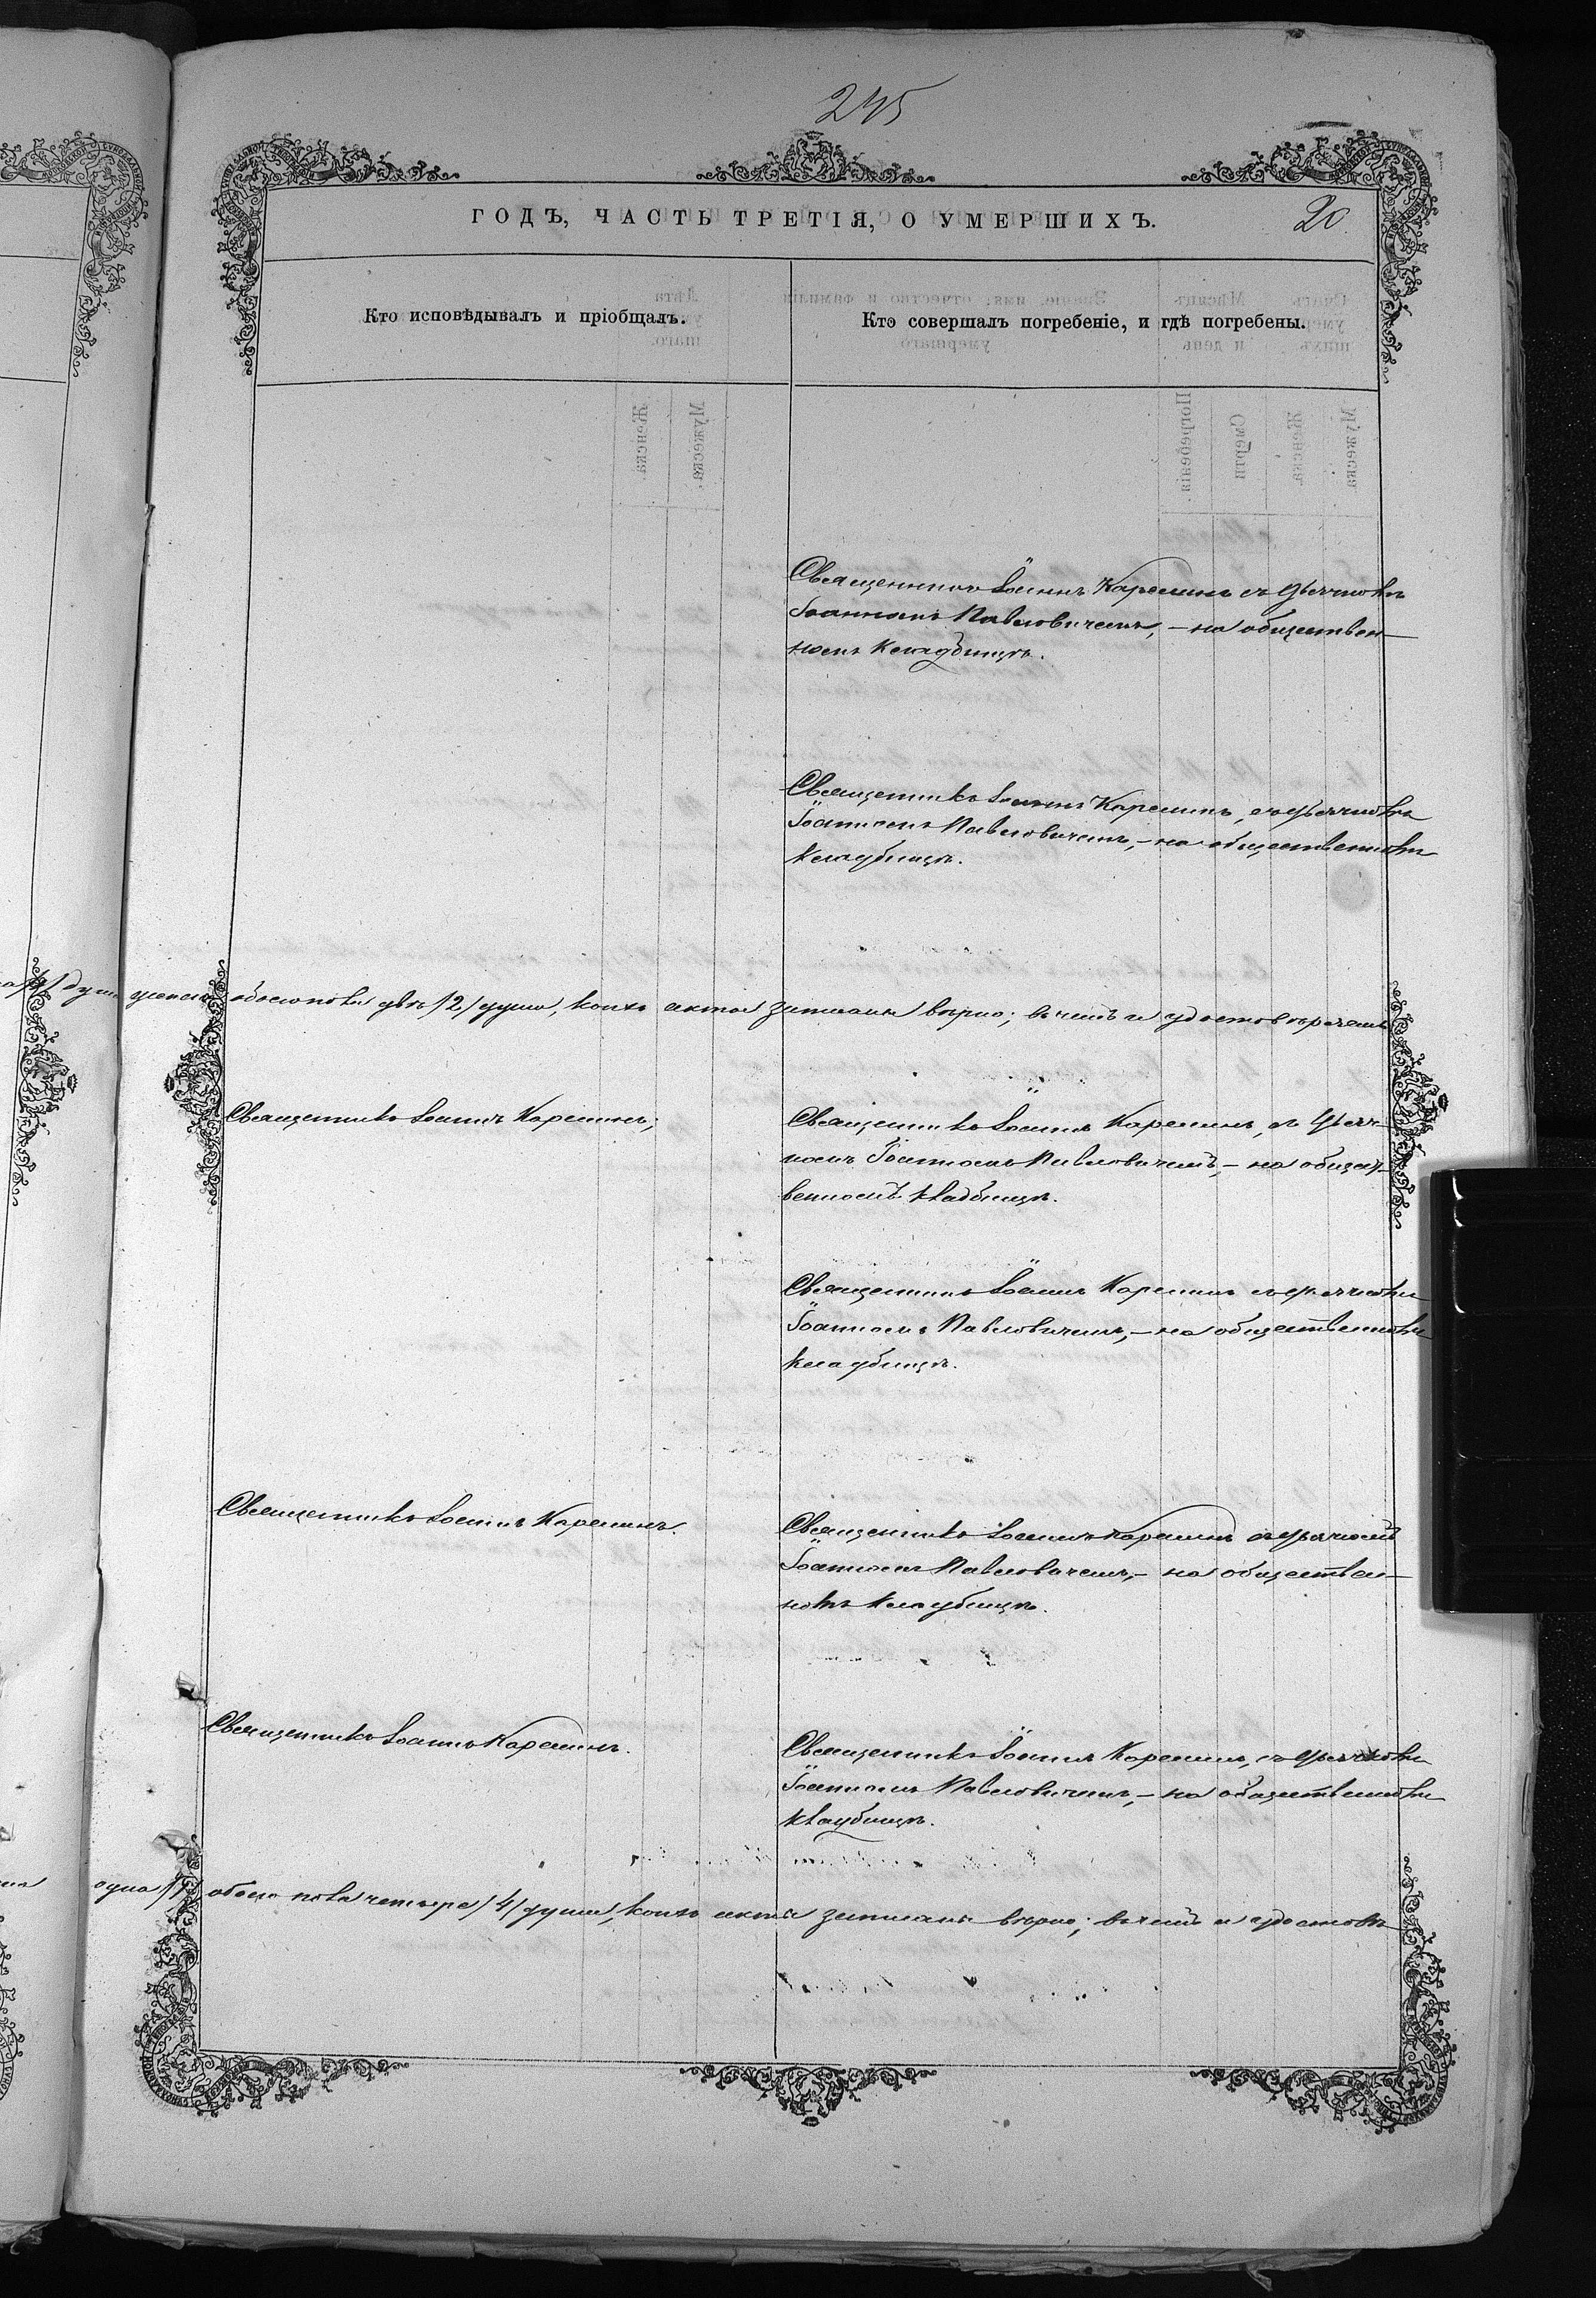 245
ГОДЪ, ЧАСТЬ ТРЕТІЯ, О УМЕРШИХЪ. 20.
Кто исповѣдывалъ и пріобщалъ.
Кто совершалъ погребеніе, и гдѣ погребены.
Священникъ Іоаннъ Карелинъ съ дьячкомъ
Іоанномъ Павловичемъ, – на обществен-
номъ кладбищѣ.
Священникъ Іоаннъ Карелинъ, съ дьячкомъ
Іоанномъ Павловичемъ, – на общественномъ
кладбищѣ.
обоего пола двѣ /2/ души, коихъ акты записаны вѣрно; въ чемъ и удостовѣряемъ
Священникъ Іоаннъ Карелинъ;
Священникъ Іоаннъ Карелинъ, съ дьяч-
комъ Іоанномъ Павловичемъ, – на общест-
венномъ кладбищѣ.
Священникъ Іоаннъ Карелинъ съ дьячкомъ
Іоанномъ Павловичемъ, – на общественномъ
кладбищѣ.
Священникъ Іоаннъ Карелинъ.
Священникъ Іоаннъ Карелинъ съ дьячкомъ
Іоанномъ Павловичемъ, – на обществен-
номъ кладбищѣ.
Священникъ Іоаннъ Карелинъ.
Священникъ Іоаннъ Карелинъ, съ дьячкомъ
Іоанномъ Павловичемъ, – на общественномъ
кладбищѣ.
одна /1/ обоего пола четыре /4/ души, коихъ акты записаны вѣрно; въ чемъ и удостовѣ